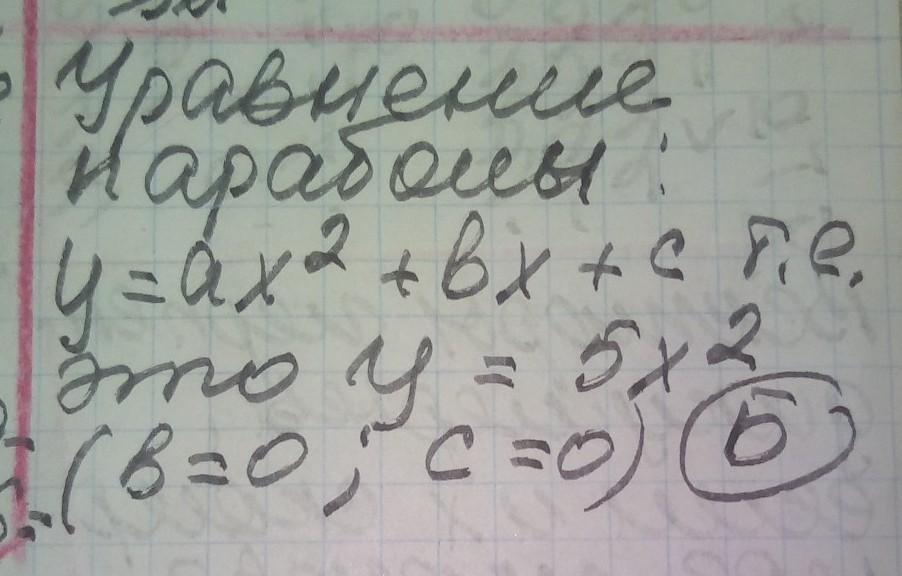 Уравнение
параболы:
y = ax² + bx + c т.е.
это y = 5x²
(b = 0; c = 0) Б